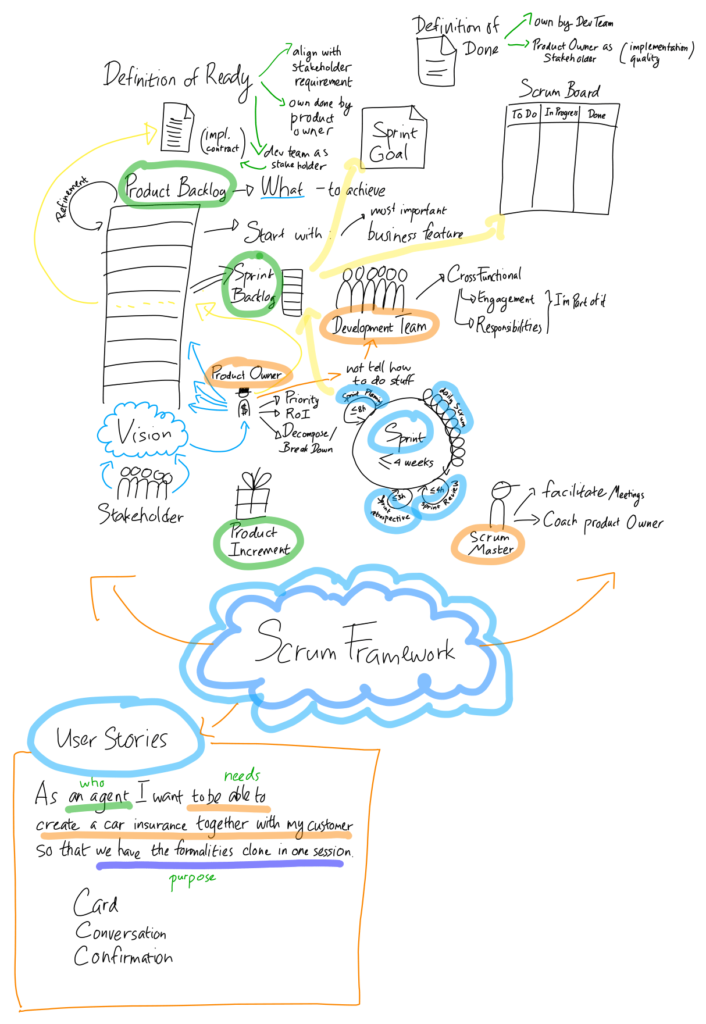 Definition of
Done
own by Dev Team
Product Owner as
Stakeholder
(implementation
quality)
Definition of Ready
align with
stakeholder
requirement
own done by
product
owner
dev team as
stakeholder
(impl.
contract)
Sprint
Goal
Scrum Board
To Do
In Progress
Done
Refinement
Product Backlog
What
- to achieve
Start with:
most important
business feature
Sprint
Backlog
Development Team
Cross Functional
Engagement
Responsibilities
I'm Part of it
Product Owner
not tell how
to do stuff
$
Priority
RoI
Decompose/
Break Down
Vision
Stakeholder
≤8h
daily Scrum
Sprint
≤ 4 weeks
≤3h
≤4h
Sprint Review
Product
Increment
Scrum
Master
facilitate Meetings
Coach product Owner
Scrum Framework
User Stories
who
needs
As an agent I want to be able to
create a car insurance together with my customer
so that we have the formalities done in one session.
purpose
Card
Conversation
Confirmation